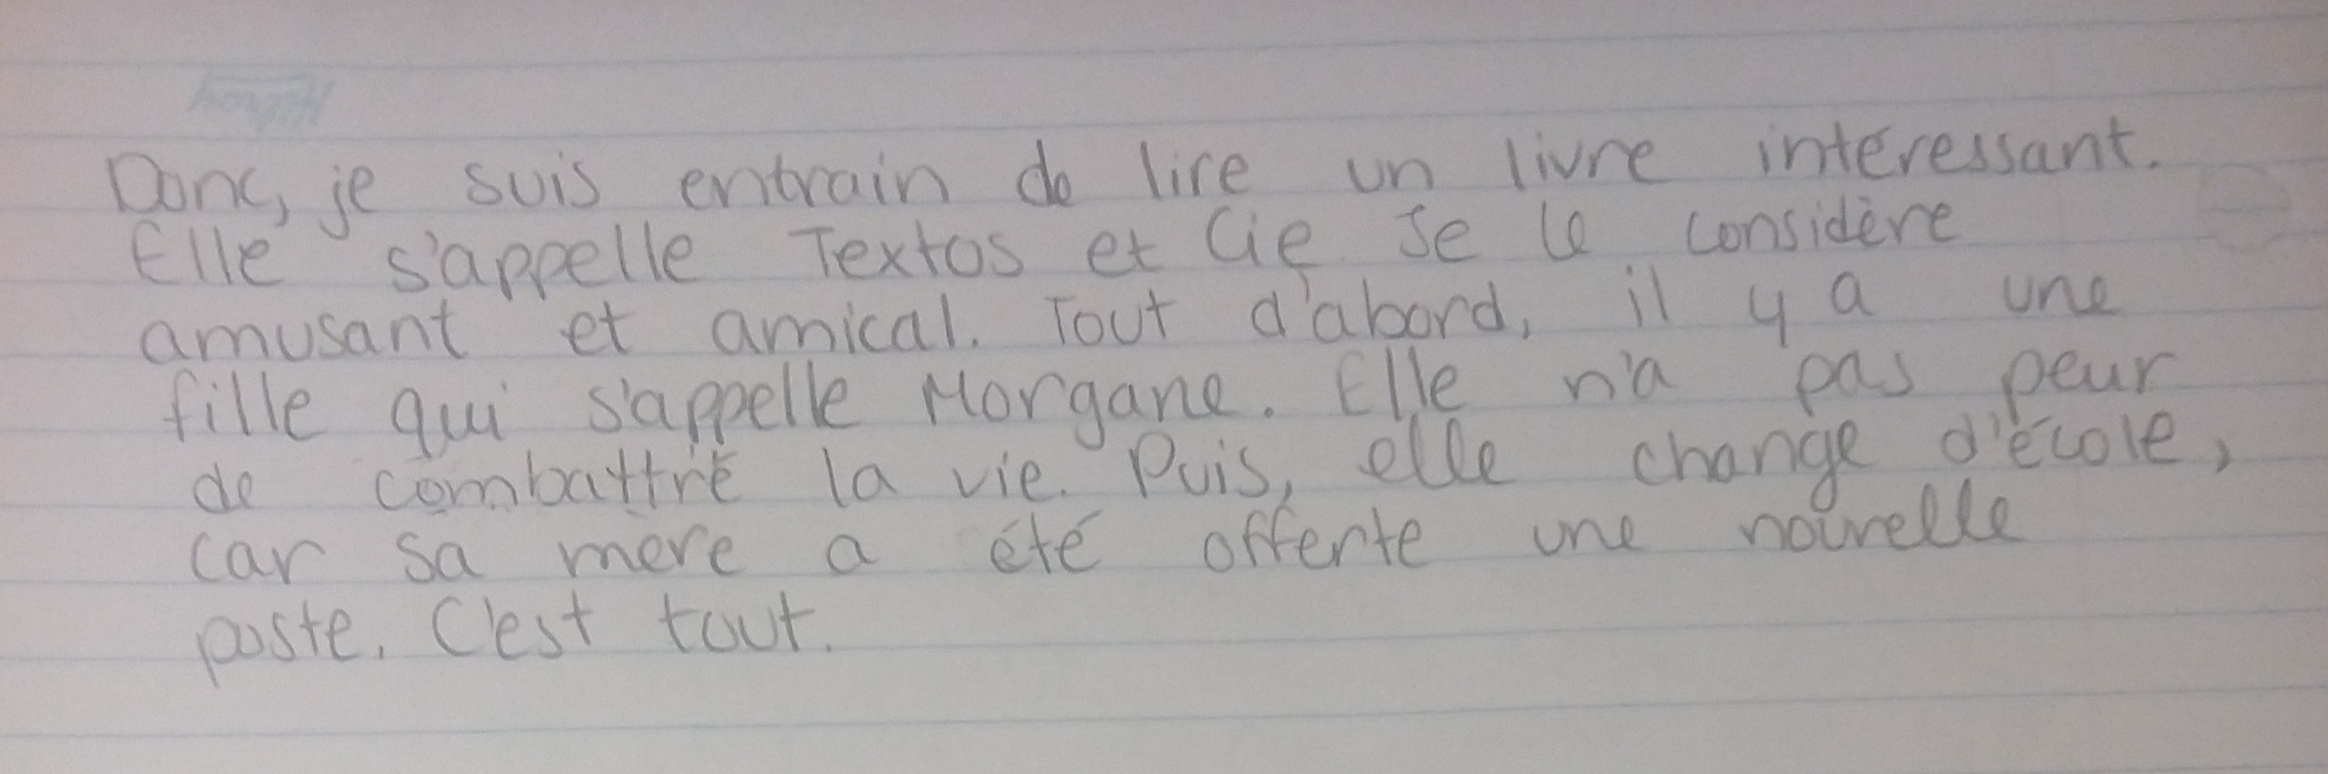 Donc, je suis entrain de lire un livre intéressant.
Elle s'appelle Textos et Cie. Je le considère
amusant et amical. Tout d'abord, il y a une
fille qui s'appelle Morgane. Elle n'a pas peur
de combattre la vie. Puis, elle change d'école,
car sa mère a été offerte une nouvelle
poste. C'est tout.